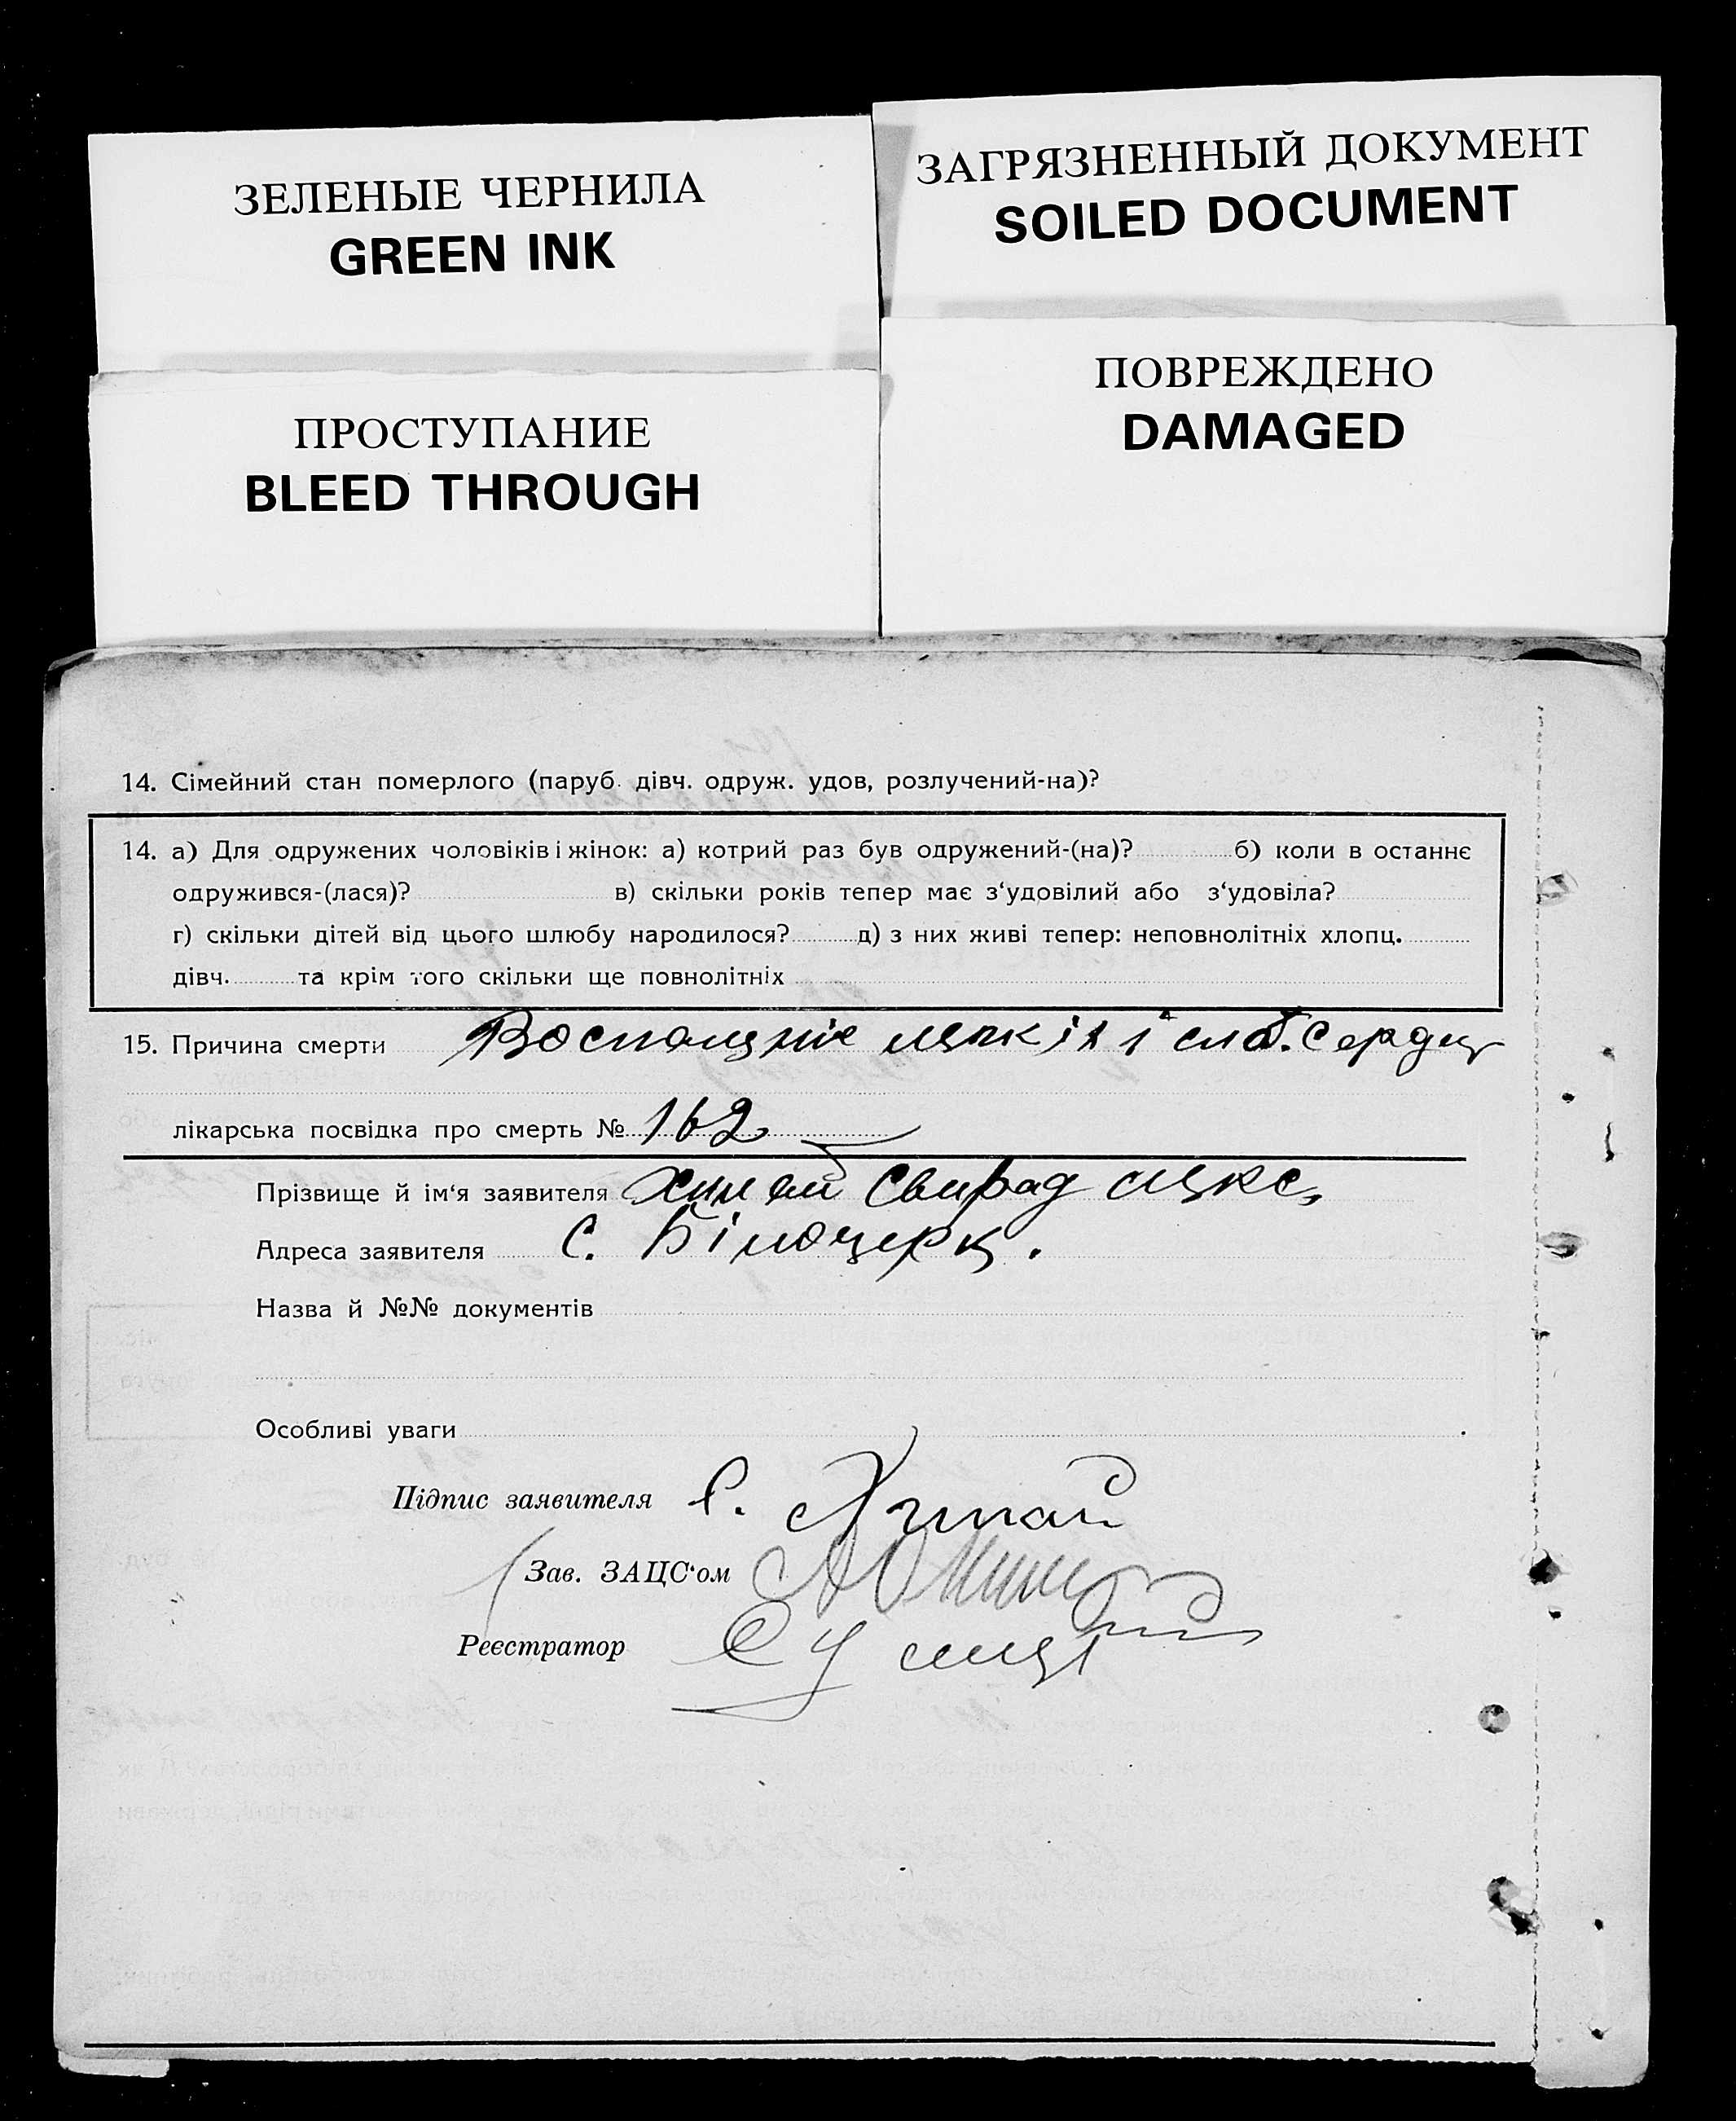 ЗЕЛЕНЫЕ ЧЕРНИЛА
GREEN INK
ЗАГРЯЗНЕННЫЙ ДОКУМЕНТ
SOILED DOCUMENT
ПРОСТУПАНИЕ
BLEED THROUGH
ПОВРЕЖДЕНО
DAMAGED
14. Сімейний стан померлого (паруб. дівч. одруж. удов, розлучений-на)?
14. а) Для одружених чоловіків і жінок: а) котрий раз був одружений-(на)? б) коли в останнє
одружився-(лася)? в) скільки років тепер має з‘удовілий або з‘удовіла?
г) скільки дітей від цього шлюбу народилося? д) з них живі тепер: неповнолітніх хлопц.
дівч. та крім того скільки ще повнолітніх
15. Причина смерти і слаб. Сердца
лікарська посвідка про смерть № 162
Прізвище й ім‘я заявителя
Адреса заявителя С. Білоцерк.
Назва й №№ документів
Особливі уваги
Підпис заявителя С.
Зав. ЗАЦС‘ом
Реєстратор